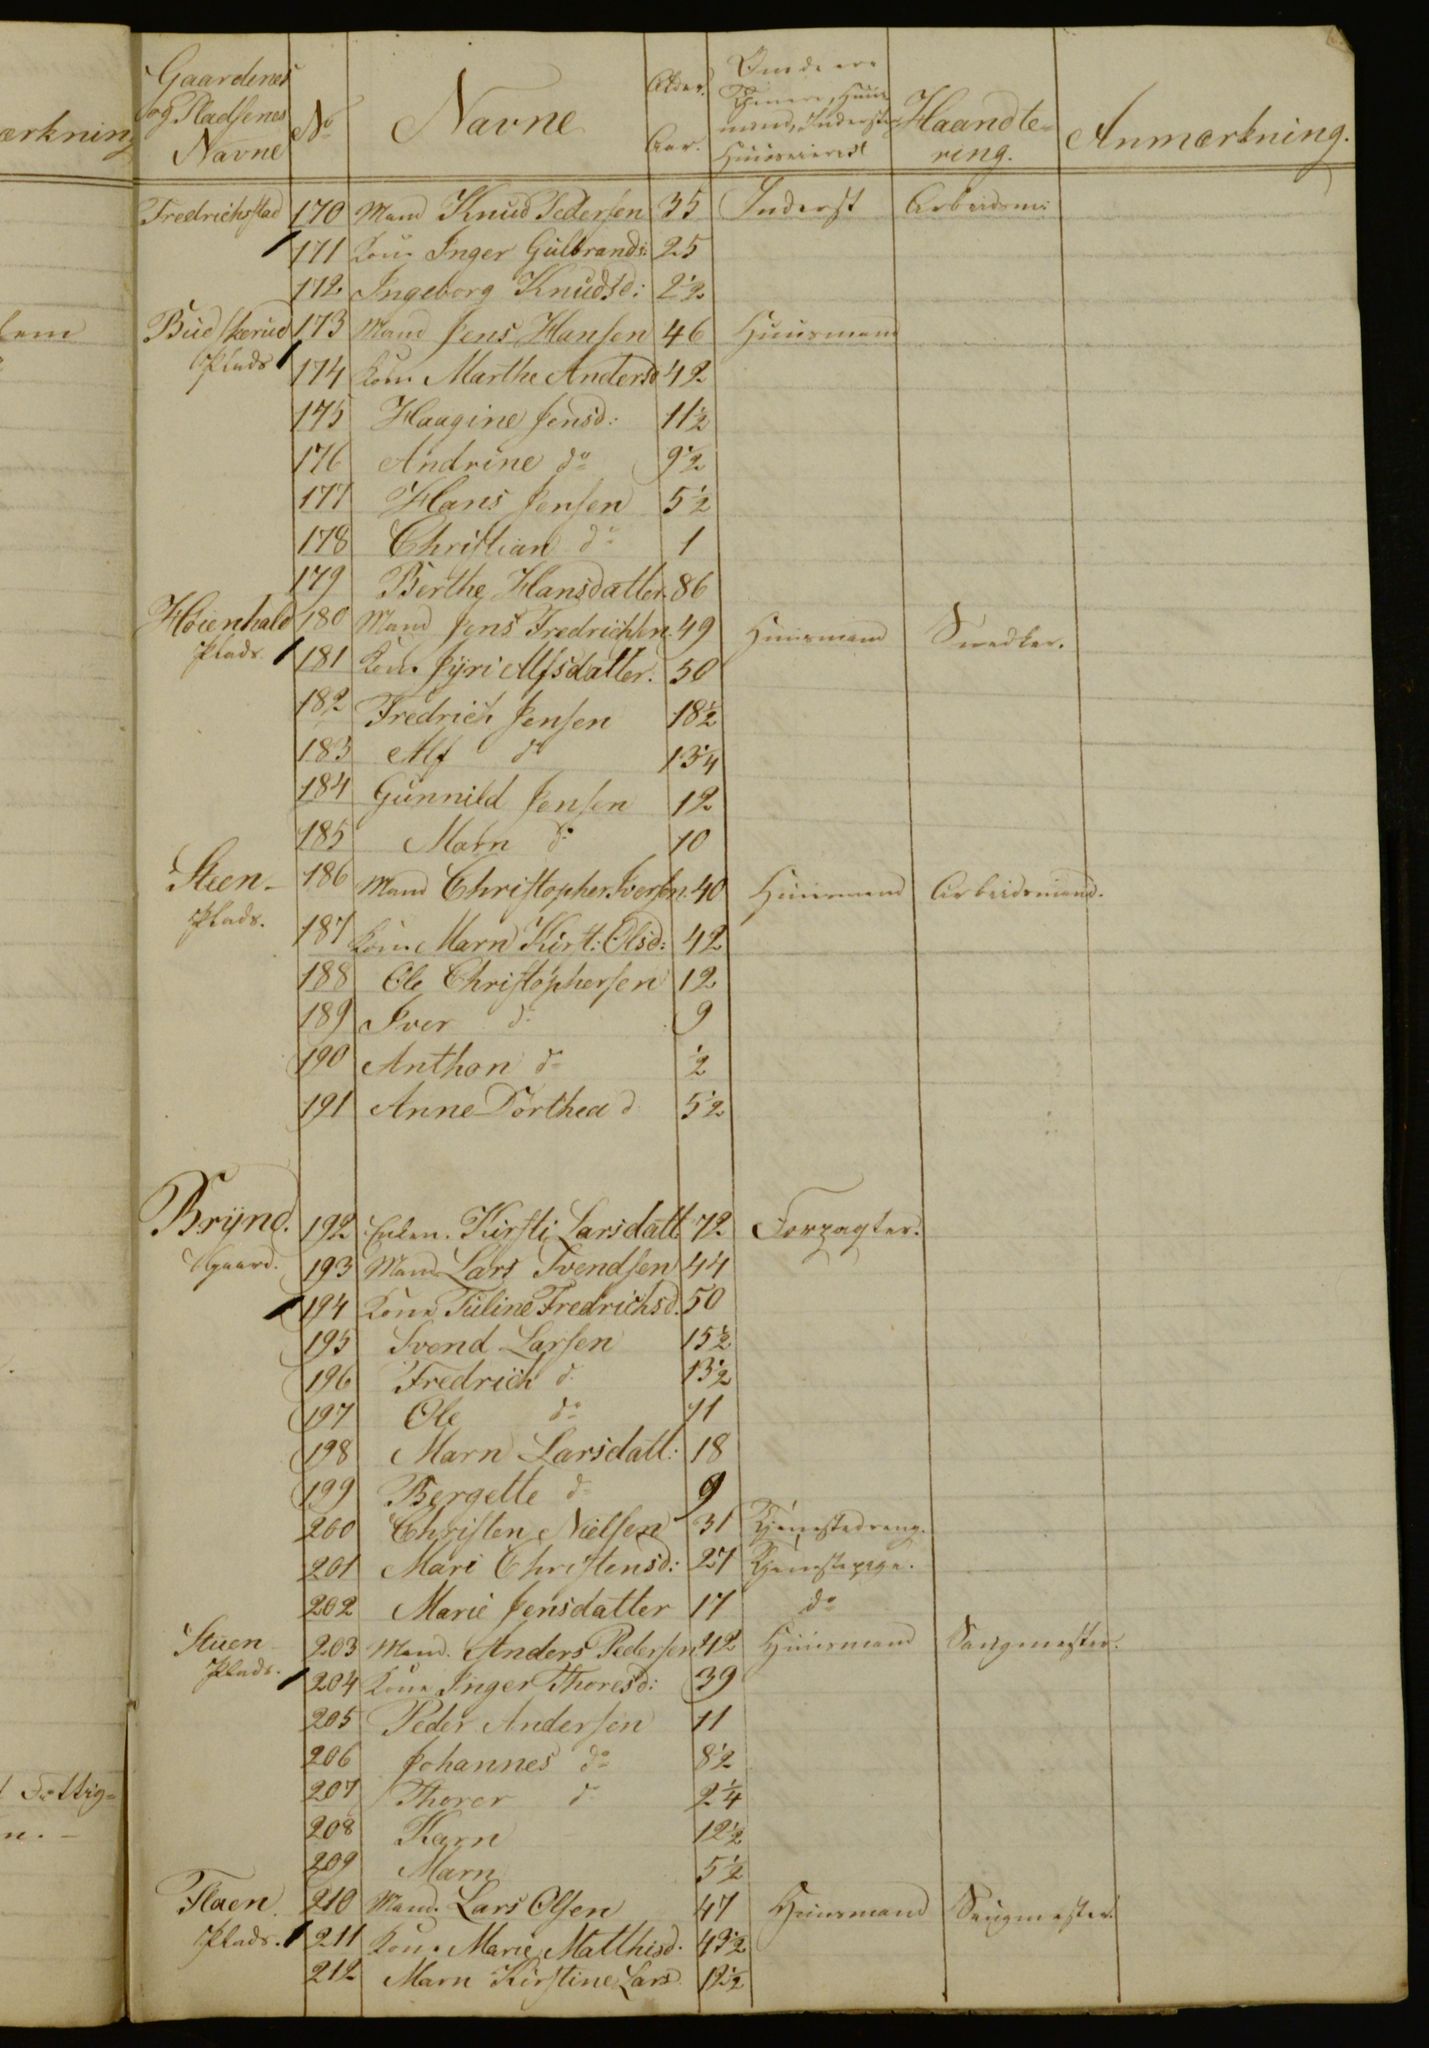 ærkning
Gaardenes og Pladsenes Navne No Navne Alder. Aar. Om de ere Tjenere, Huusmænd, Inderster Haandtering. Anmærkning.
Fredrichstad 170 Mand Knud Pedersen 35 Inderst Arbeidsm:
171 Kone Inger Gulbrandsd: 25
172 Ingeborg Knudsd: 2½
Budskerud 173 Mand Jens Hansen 46 Huusmand
Plads 174 Kone Marthe Andersd 42
175 Haagine Jensd: 11½
176 Andrine do 9½
177 Hans Jensen 5½
178 Christian do 1
179 Berthe Hansdatter 86
Høienhald 180 Mand Jens Fredrichsen 49 Huusmand Snedker.
Plads. 181 Kone Jyri Alfsdatter. 50
182 Fredrich Jensen 18½
183 Alf do 13¼
184 Gunnild Jensen 12
185 Marn do 10
Steen- 186 Mand Christopher Iversen 40 Huusmand Arbeidsmand.
Plads. 187 Kone Marn Kirst: Olsd: 42
188 Ole Christophersen 12
189 Iver do 9
190 Anthon do ½
191 Anne Dorthea d 5½
Brynd. 192 Enken. Kirsti Larsdatt 72 Forpagter.
Gaard. 193 Mand Lars Svendsen 44
194 Kone Tuline Fredrichsd. 50
195 Svend Larsen 15½
196 Fredrich do 13½
197 Ole do 11
198 Marn Larsdatt: 18
199 Bergette do 9
200 Christen Nielsen 31 Tjenestedreng.
201 Mari Christensd: 27 Tjenestepige.
202 Marie Jensdatter 17 do
Stuen 203 Mand. Anders Pedersen 42 Huusmand Saugmester.
Plads. 204 Kone Inger Thoresd: 39
205 Peder Andersen 11
206 Johannes do 8½
207 Thorer do 2¼
208 Karn 12½
209 Marn 5½
Flaen 210 Mand. Lars Olsen 47 Huusmand Saugmester.
Plads. 211 Kone Marie Matthisd. 43½
212 Marn Kirstine Lars 12½